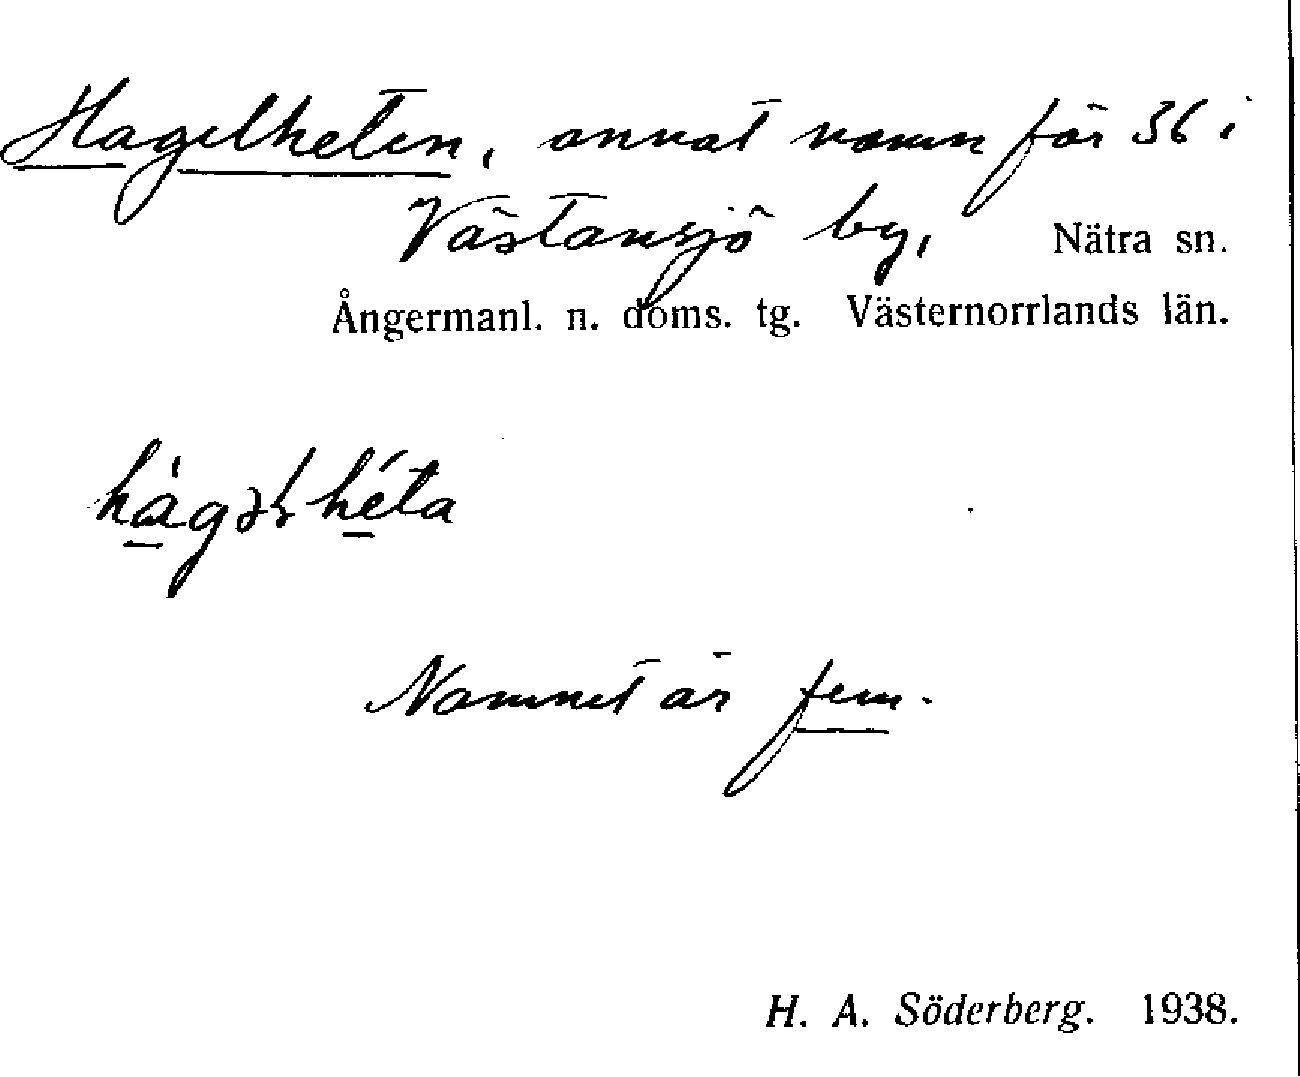 Hagelheten, annat namn för 36 i
Västansjö by, Nätra sn.
Ångermanl. n. doms. tg. Västernorrlands län.
Namnet är fem.
H. A. Söderberg. 1938.